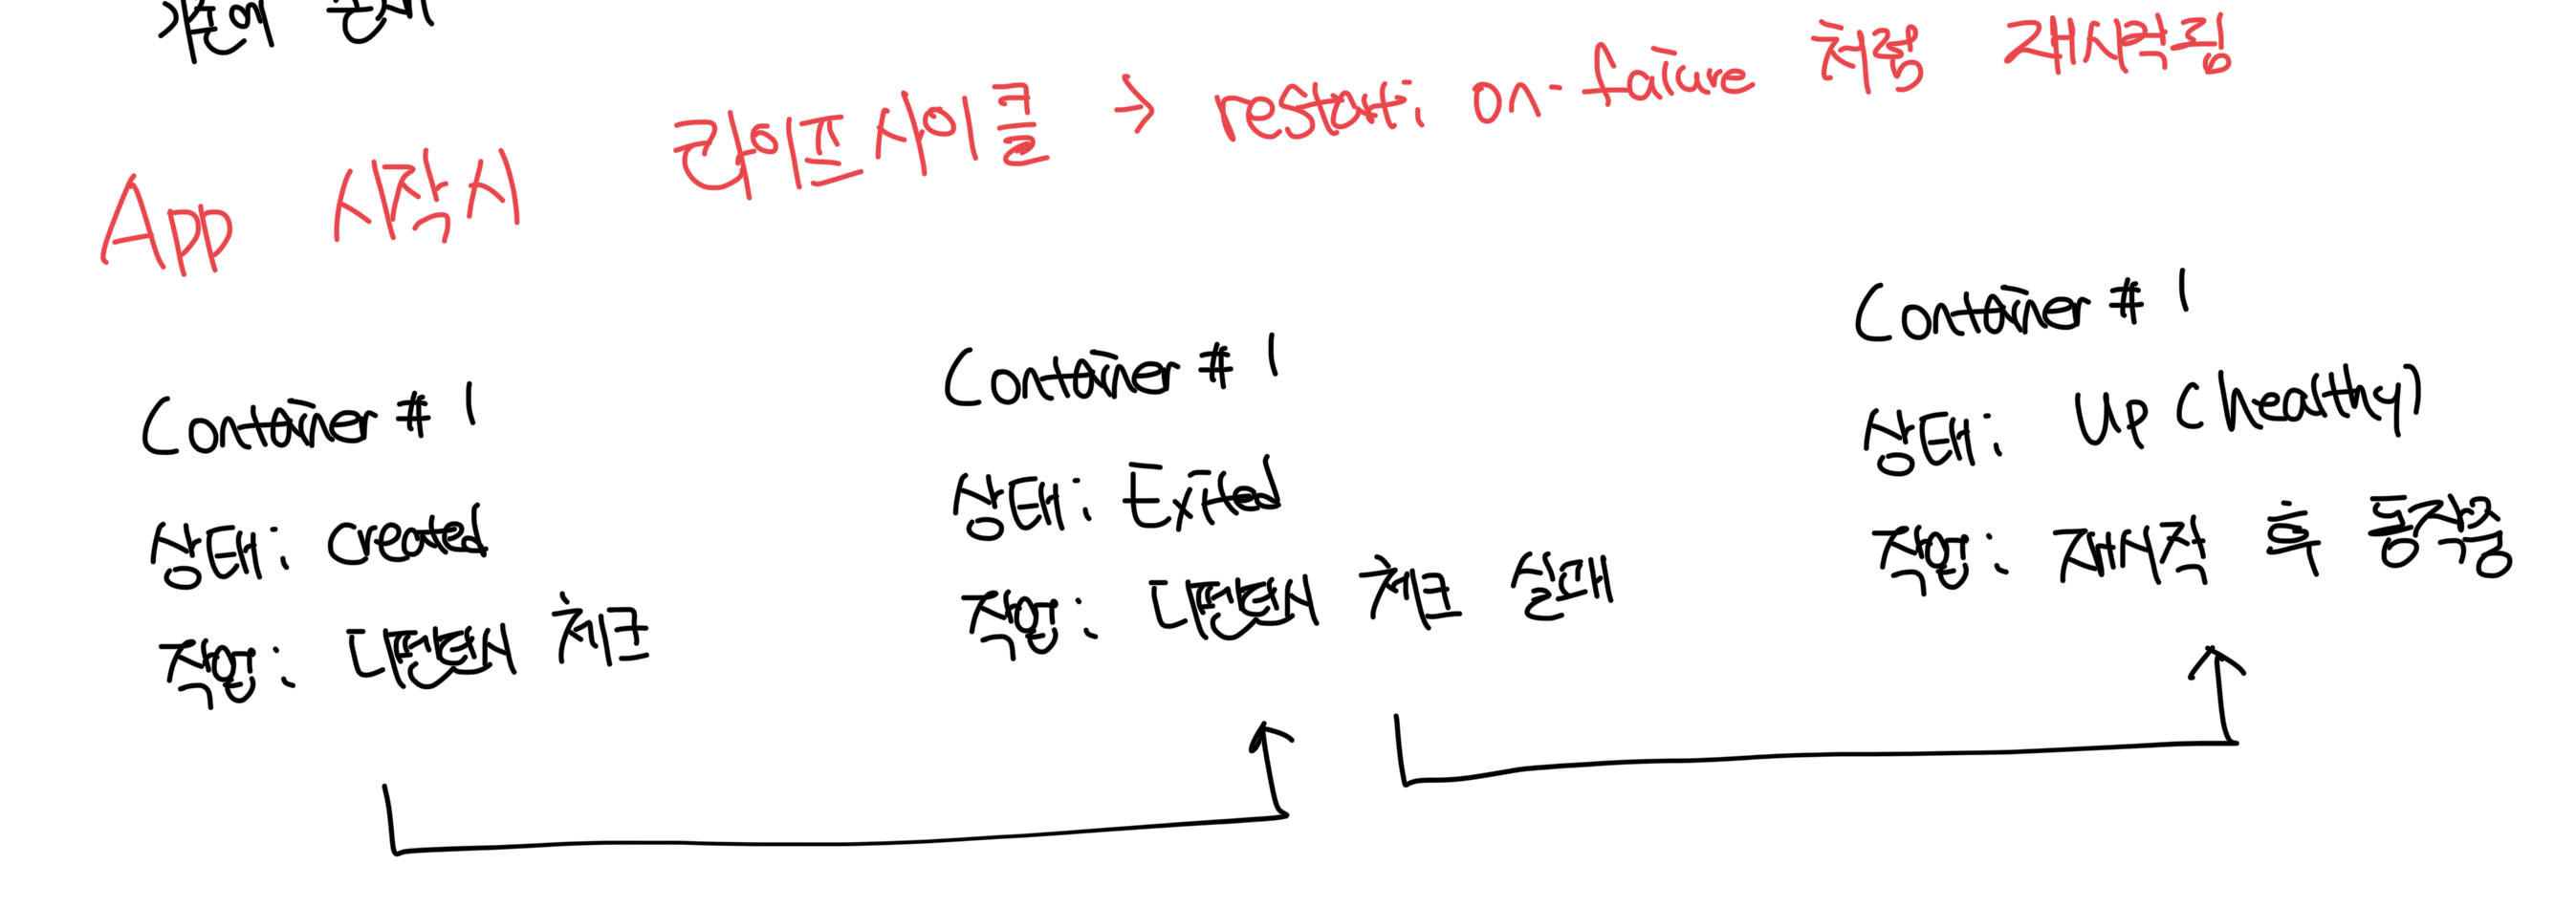 App 시작시 라이프사이클 → restart: on-faiure 처럼 재시작됨
Container # 1
상태: created
작업: 디펜던시 체크
Container # 1
상태: Exited
작업: 디펜던시 체크 실패
Container # 1
상태: Up (healthy)
작업: 재시작 후 동작중